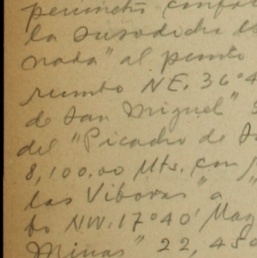 perimetro confor
la susodicha
nada" al punto
rumbo NE. 36°4
de San Miguel"
del "Picacho de
8,100.00 Mts. con
las Viboras" a
bo NW. 17°40' Mag
Minas" 22,450